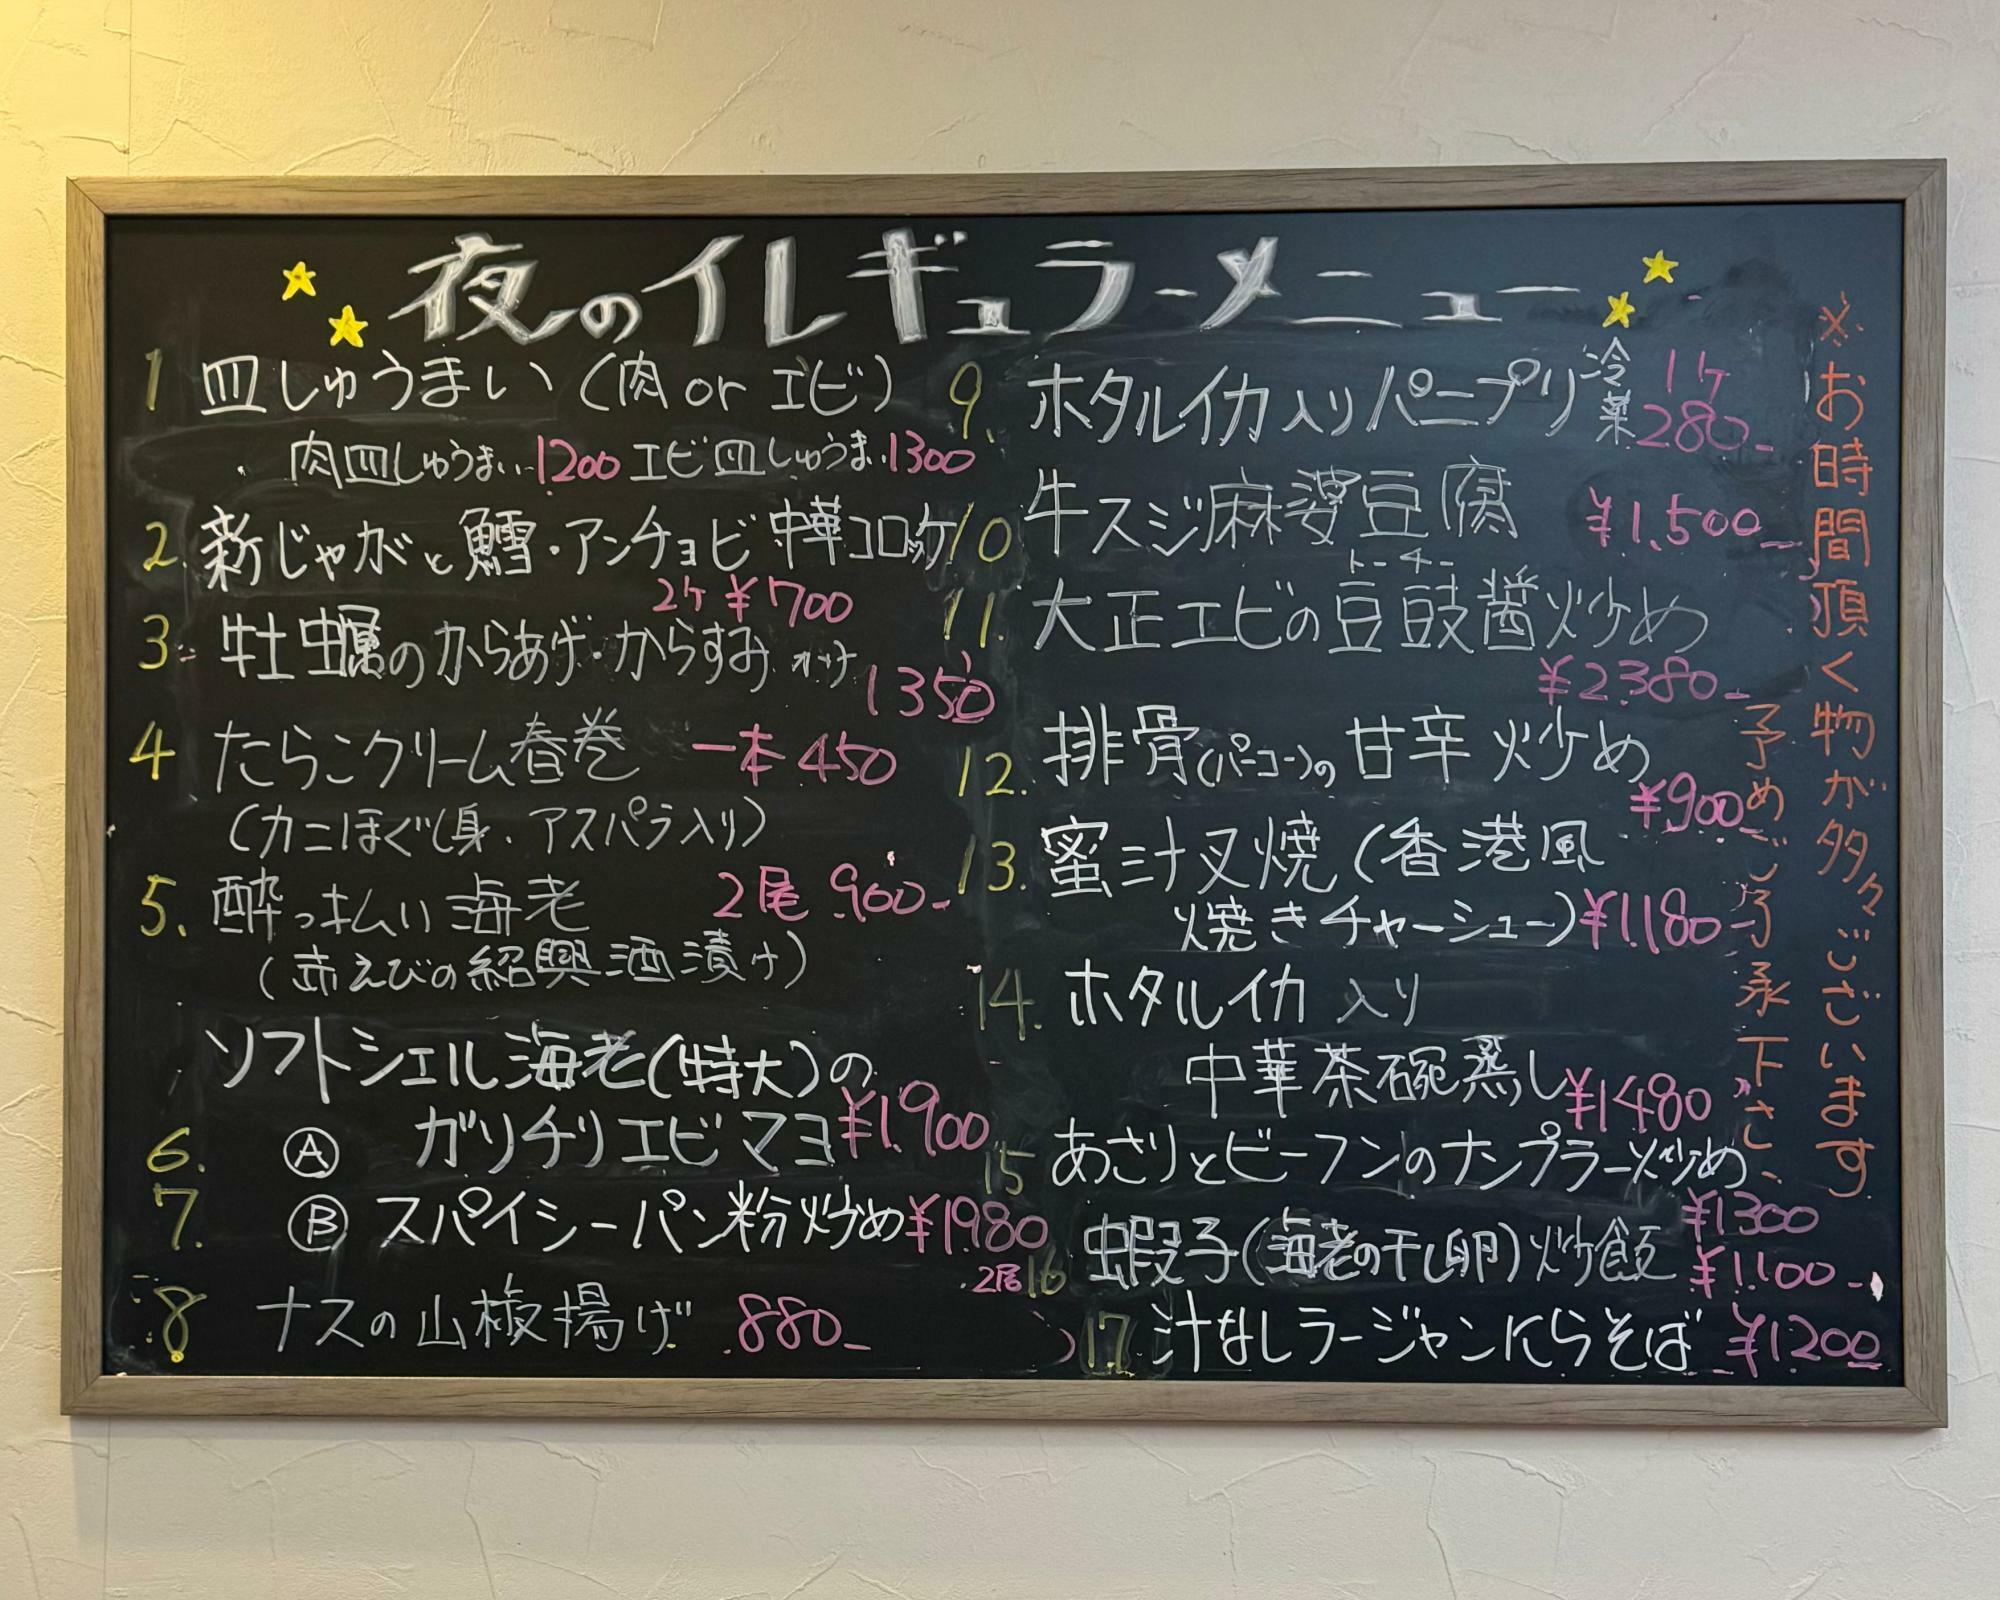 夜のイレギュラーメニュー
1 皿しゅうまい(肉 or エビ)
肉皿しゅうまい 1200 エビ皿しゅうまい 1300
2. 新じゃがと鱈・アンチョビ 中華コロッケ
2ケ ¥700
3 牡蠣のからあげ・からすみ
1350
4 たらこクリーム春巻 一本 450
(カニほぐし身・アスパラ入り)
5. 酔っ払い海老 2尾 900-
(赤えびの紹興酒漬け)
ソフトシェル海老(特大)の
6. Ⓐ ガリチリエビマヨ ¥1.900
7. Ⓑ スパイシーパン粉炒め ¥1980
2尾
8 ナスの山椒揚げ 880-
9. ホタルイカ入りパニプリ 冷菜 1ケ 280-
10 牛スジ麻婆豆腐 ¥1.500-
トーチー
11. 大正エビの豆豉醤炒め
¥2380-
12. 排骨(パーコー)の甘辛炒め
¥900-
13. 蜜汁叉焼(香港風
焼きチャーシュー) ¥1180-
14. ホタルイカ入り
中華茶碗蒸し ¥1480
15 あさりとビーフンのナンプラー炒め
¥1300
16 蝦子(海老の干し卵)炒飯 ¥1.100-
17 汁なしラージャンにらそば ¥1200
※お時間頂く物が多々ございます
予めご了承下さい